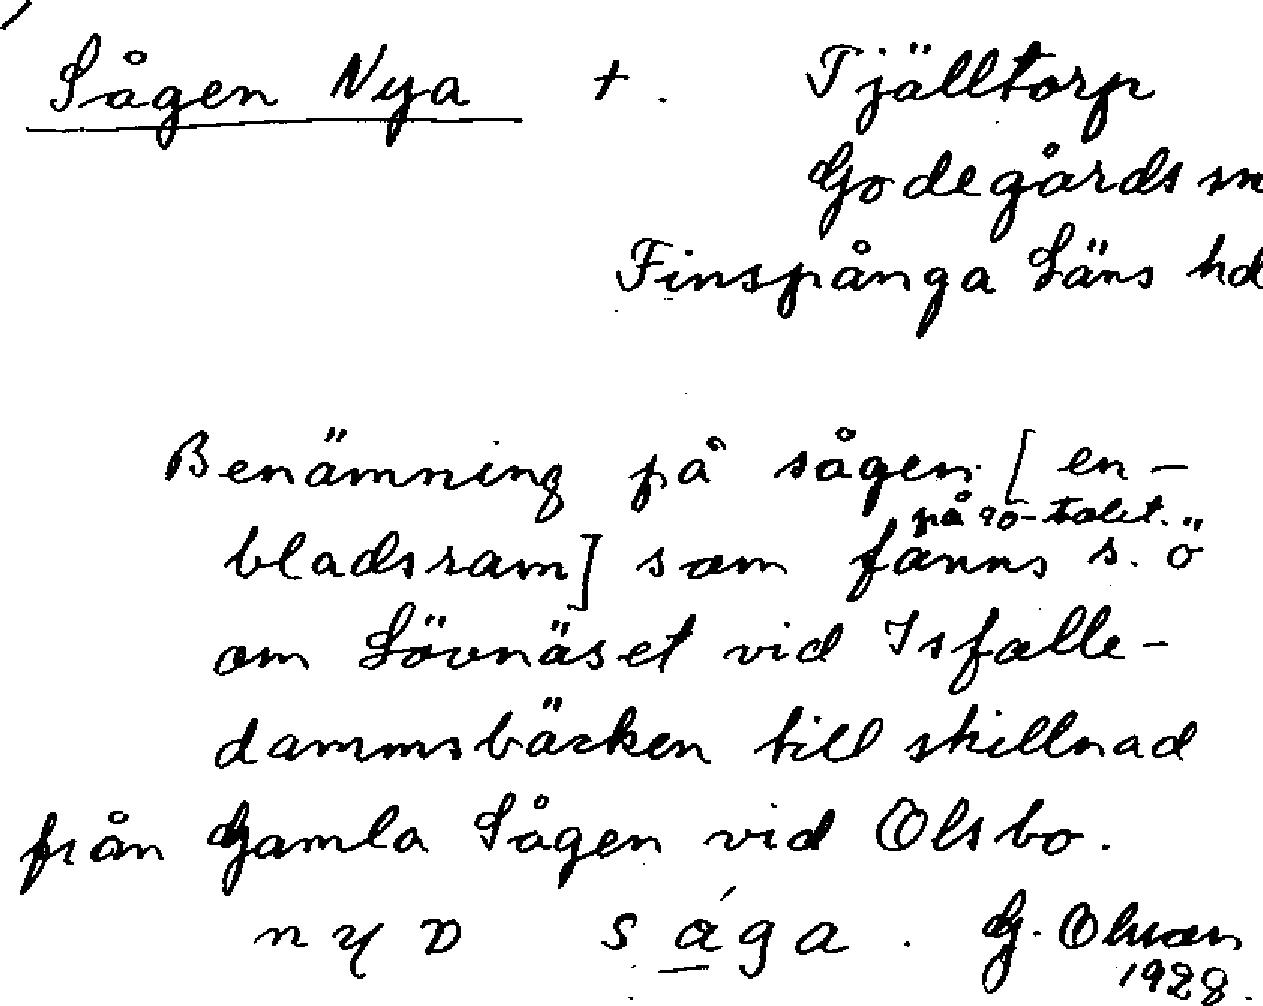 Sågen Nya + . Tjälltorp
Godegårds sn
Finspånga Läns hd
Benämning på sågen [en-
på 90-talet.
bladsram] som fanns s. ö
om Lövnäset vid Isfalle-
dammsbäcken till skillnad
från Gamla Sågen vid Olsbo.
nyo sága . G. Olsson
1928.